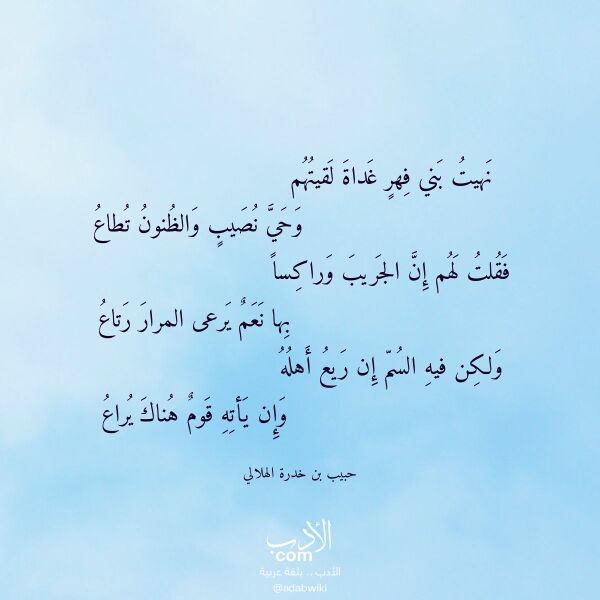 نَهيتُ بَني فِهرٍ غَداةَ لَقيتُهُم
وَحَيَّ نُصَيبٍ وَالظُنونُ تُطاعُ
فَقُلتُ لَهُم إِنَّ الجَريبَ وَراكِساً
بِها نَعَمٌ يَرعى المرارَ رَتاعُ
وَلكِن فيهِ السُمّ إِن رَيعُ أَهلُهُ
وَإِن يَأتِهِ قَومٌ هُناكَ يُراعُ
حبيب بن خدرة الهلالي
الأدب
com
الأدب .. بلغة عربية
@adabwiki